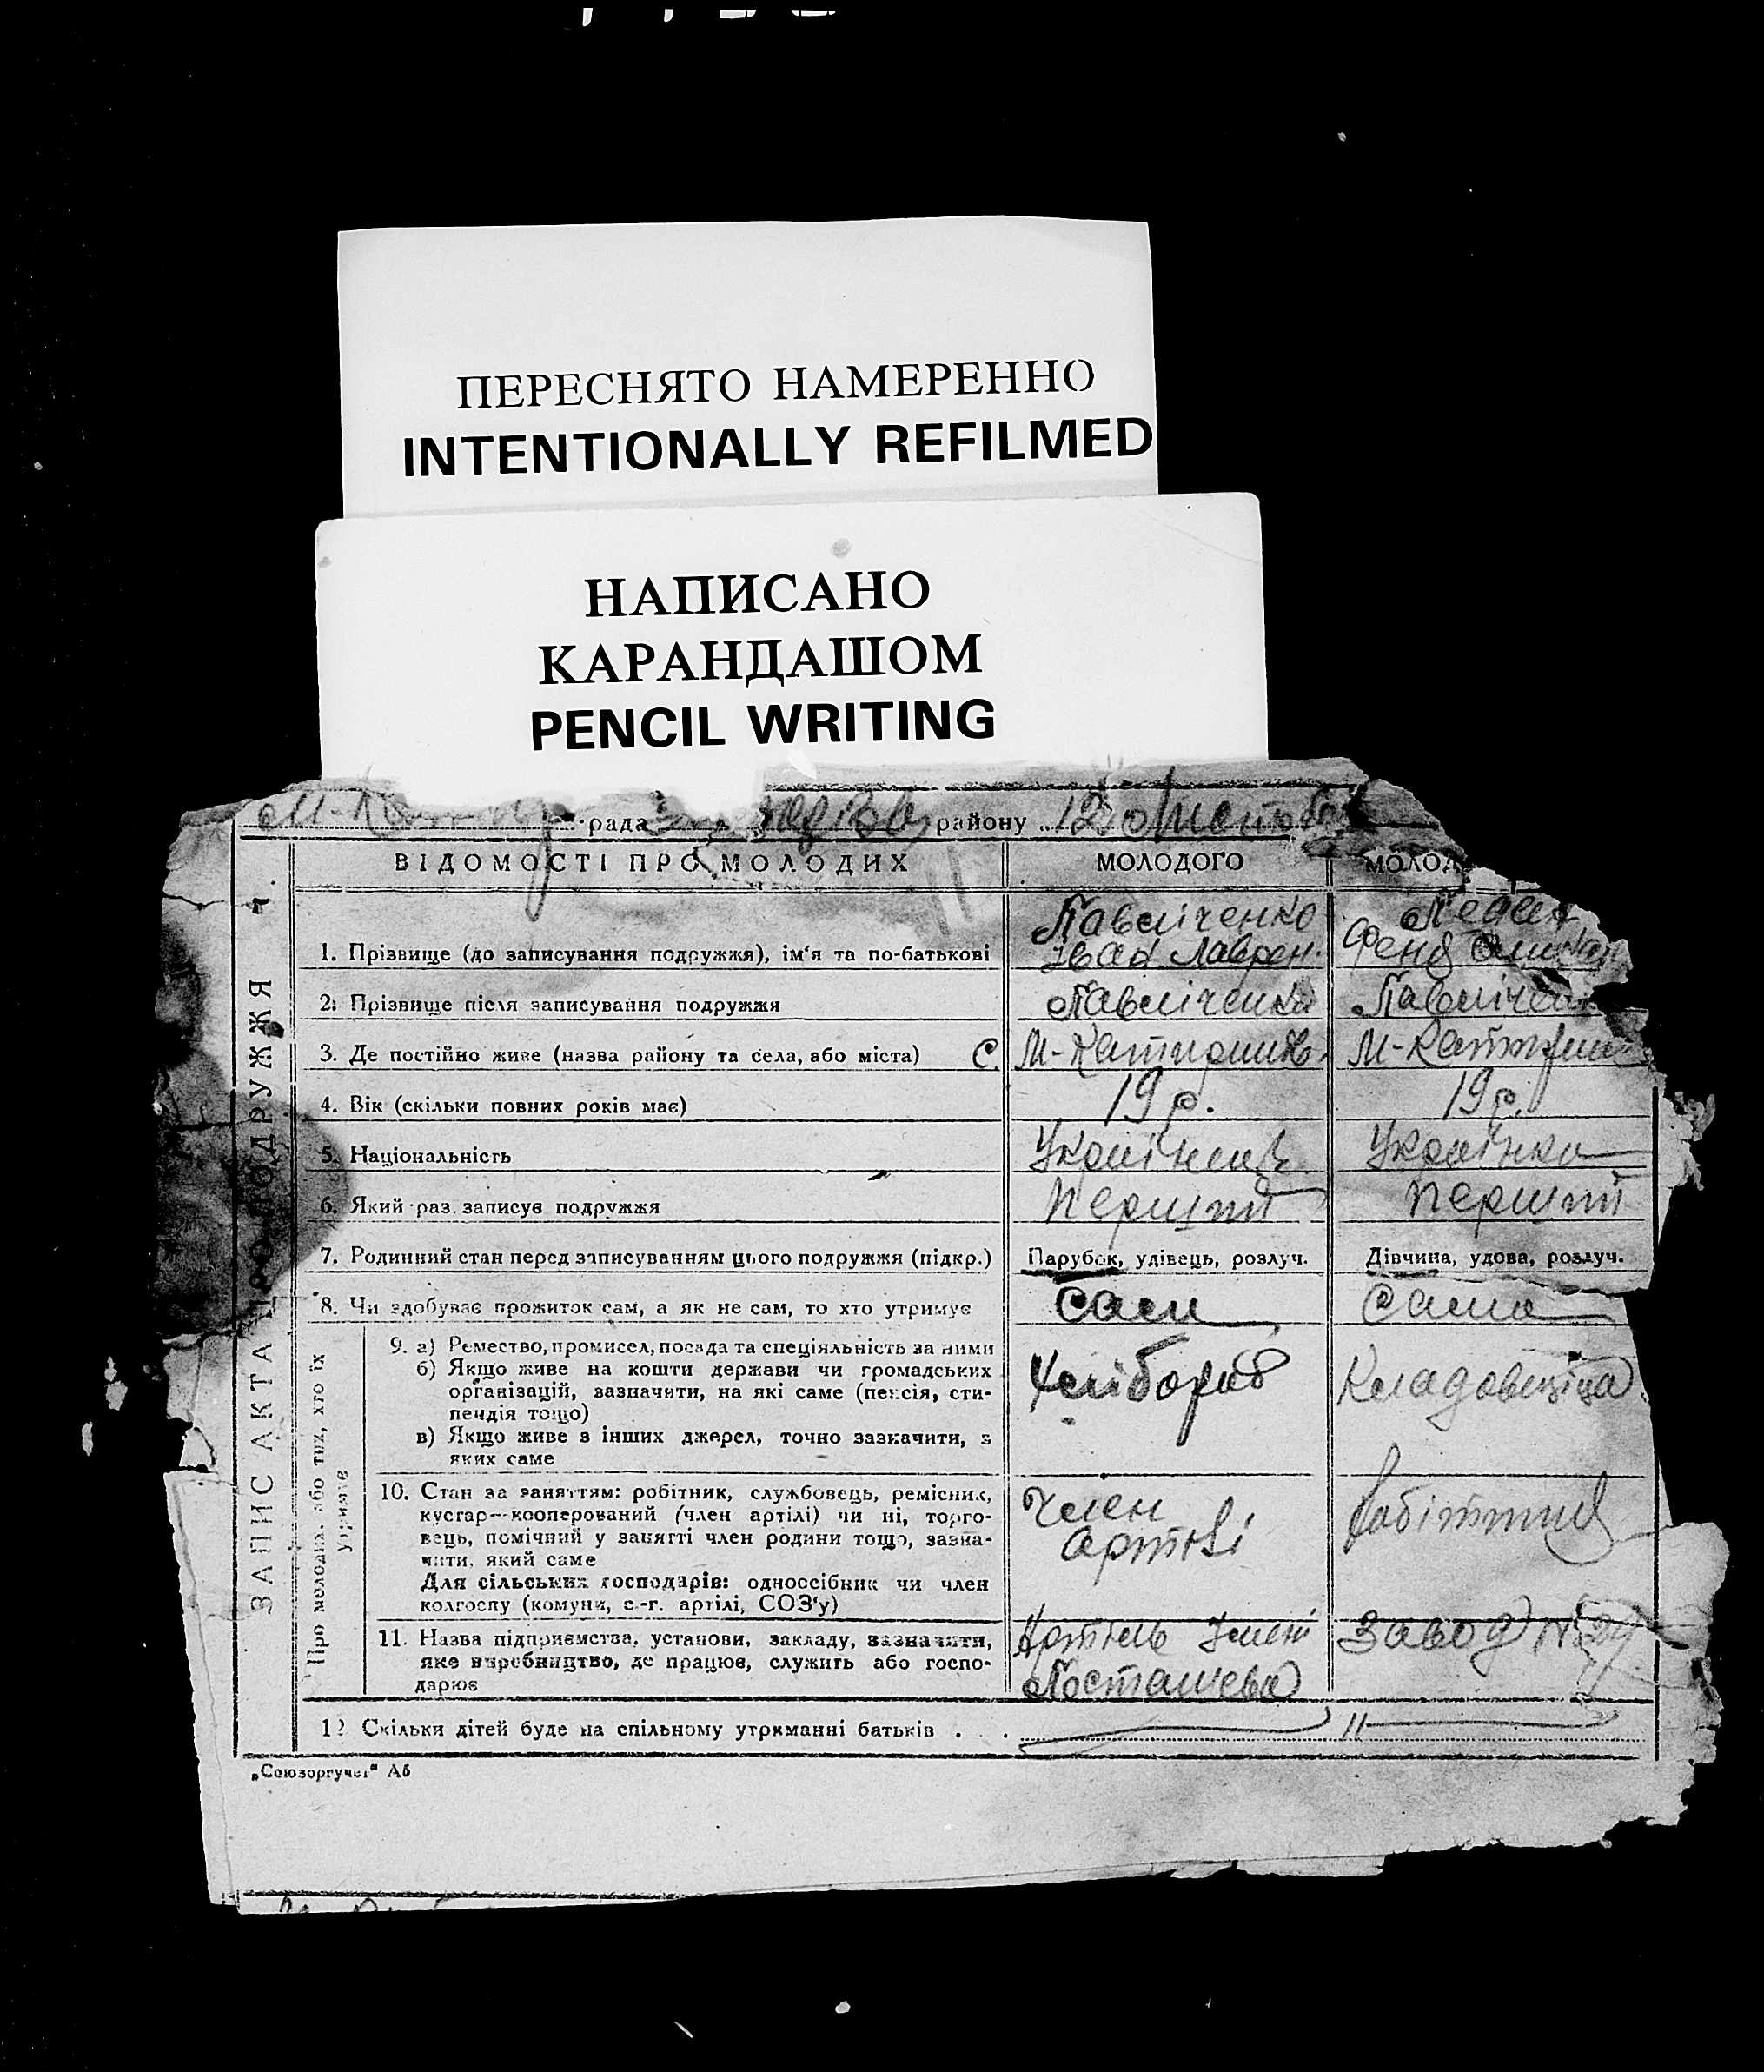 ПЕРЕСНЯТО НАМЕРЕННО
INTENTIONALLY REFILMED
НАПИСАНО
КАРАНДАШОМ
PENCIL WRITING
рада району 12
ЗАПИС АКТА ПРО ПОДРУЖЖЯ ч.
ВІДОМОСТІ ПРО МОЛОДИХ МОЛОДОГО МОЛОД
Павліченко
1. Прізвище (до записування подружжя), ім‘я та по-батькові Іван Лаврен.
2. Прізвище після записування подружжя Павліченко Павліченко
3. Де постійно живе (назва району та села, або міста) С.
4. Вік (скільки повних років має) 19 р. 19 р.
5. Національність Українець Українка
6. Який раз записує подружжя перший перший
7. Родинний стан перед записуванням цього подружжя (підкр.) Парубок, удівець, розлуч. Дівчина, удова, розлуч.
8. Чи здобуває прожиток сам, а як не сам, то хто утримує Сам Сама
Про молодих, або тих, хто їх
утримує
9. а) Ремество, промисел, посада та спеціяльність за ними
б) Якщо живе на кошти держави чи громадських Хлібороб Кладовщица
організацій, зазначити, на які саме (пенсія, сти-
пендія тощо)
в) Якщо живе з інших джерел, точно зазначити, з
яких саме
10. Стан за заняттям: робітник, службовець, ремісник, Член
кустар—кооперований (член артілі) чи ні, торго- робітниця
вець, помічний у занятті член родини тощо, зазна- артілі
чити, який саме
Для сільських господарів: одноосібник чи член
колгоспу (комуни, с.-г. артілі, СОЗ‘у)
11. Назва підприємства, установи, закладу, зазначити, Артіль Імені Завод №
яке виробництво, де працює, служить або госпо-
дарює Посташева
12 Скільки дітей буде на спільному утриманні батьків . . .
„Союзоргучет“ А5